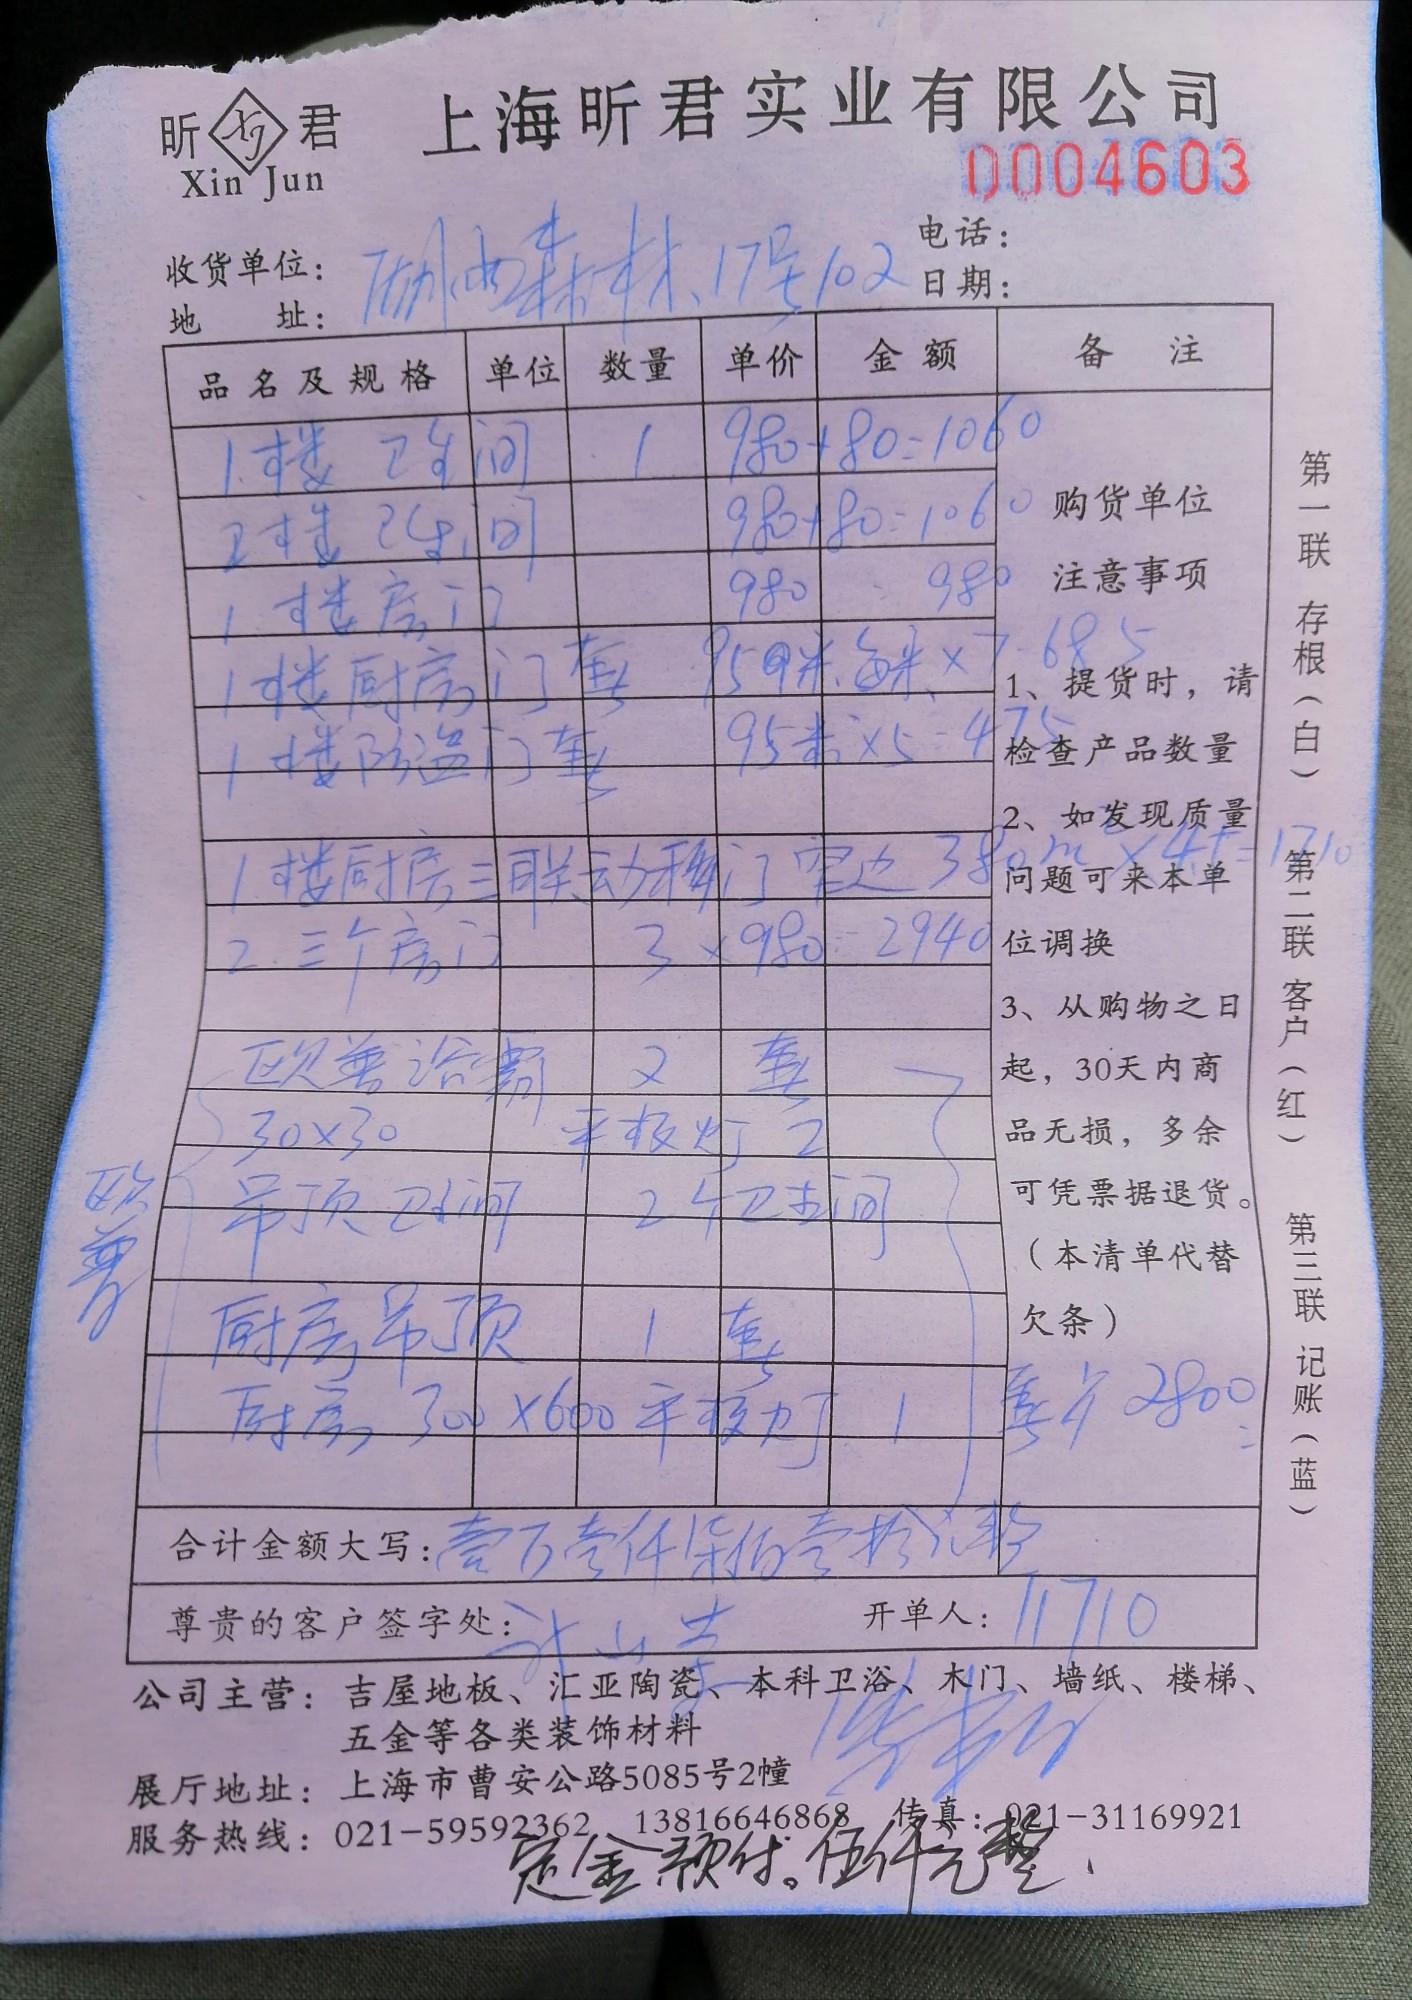 昕 君
Xin Jun
上海昕君实业有限公司
0004603
收货单位：
电话：
地 址： 17号102
日期：
品名及规格 单位 数量 单价 金额 备注
1.楼 卫生间 1 980+80=1060
2楼 卫生间 980+80=1060
1.楼房门 980 980
1楼厨房门套 95 米 每米×7 685
1楼防盗门套 95米×5=475
1.楼厨房三联动移门窄边 380m²×4.5=1710
2.三个房门 3×980=2940
欧普浴霸 2 套
30×30 平板灯 2
吊顶卫生间 2个卫生间
厨房吊顶 1 套
厨房 300×600平板灯 1
欧普
购货单位
注意事项
1、提货时，请
检查产品数量
2、如发现质量
问题可来本单
位调换
3、从购物之日
起，30天内商
品无损，多余
可凭票据退货。
（本清单代替
欠条）
2800
合计金额大写：壹万壹仟柒佰壹拾元整
尊贵的客户签字处：
开单人：
11710
公司主营：吉屋地板、汇亚陶瓷、本科卫浴、木门、墙纸、楼梯、
五金等各类装饰材料
展厅地址：上海市曹安公路5085号2幢
服务热线：021-59592362 13816646868 传真：021-31169921
定金预付。伍仟元整
第一联 存根（白）
第二联 客户（红）
第三联 记账（蓝）